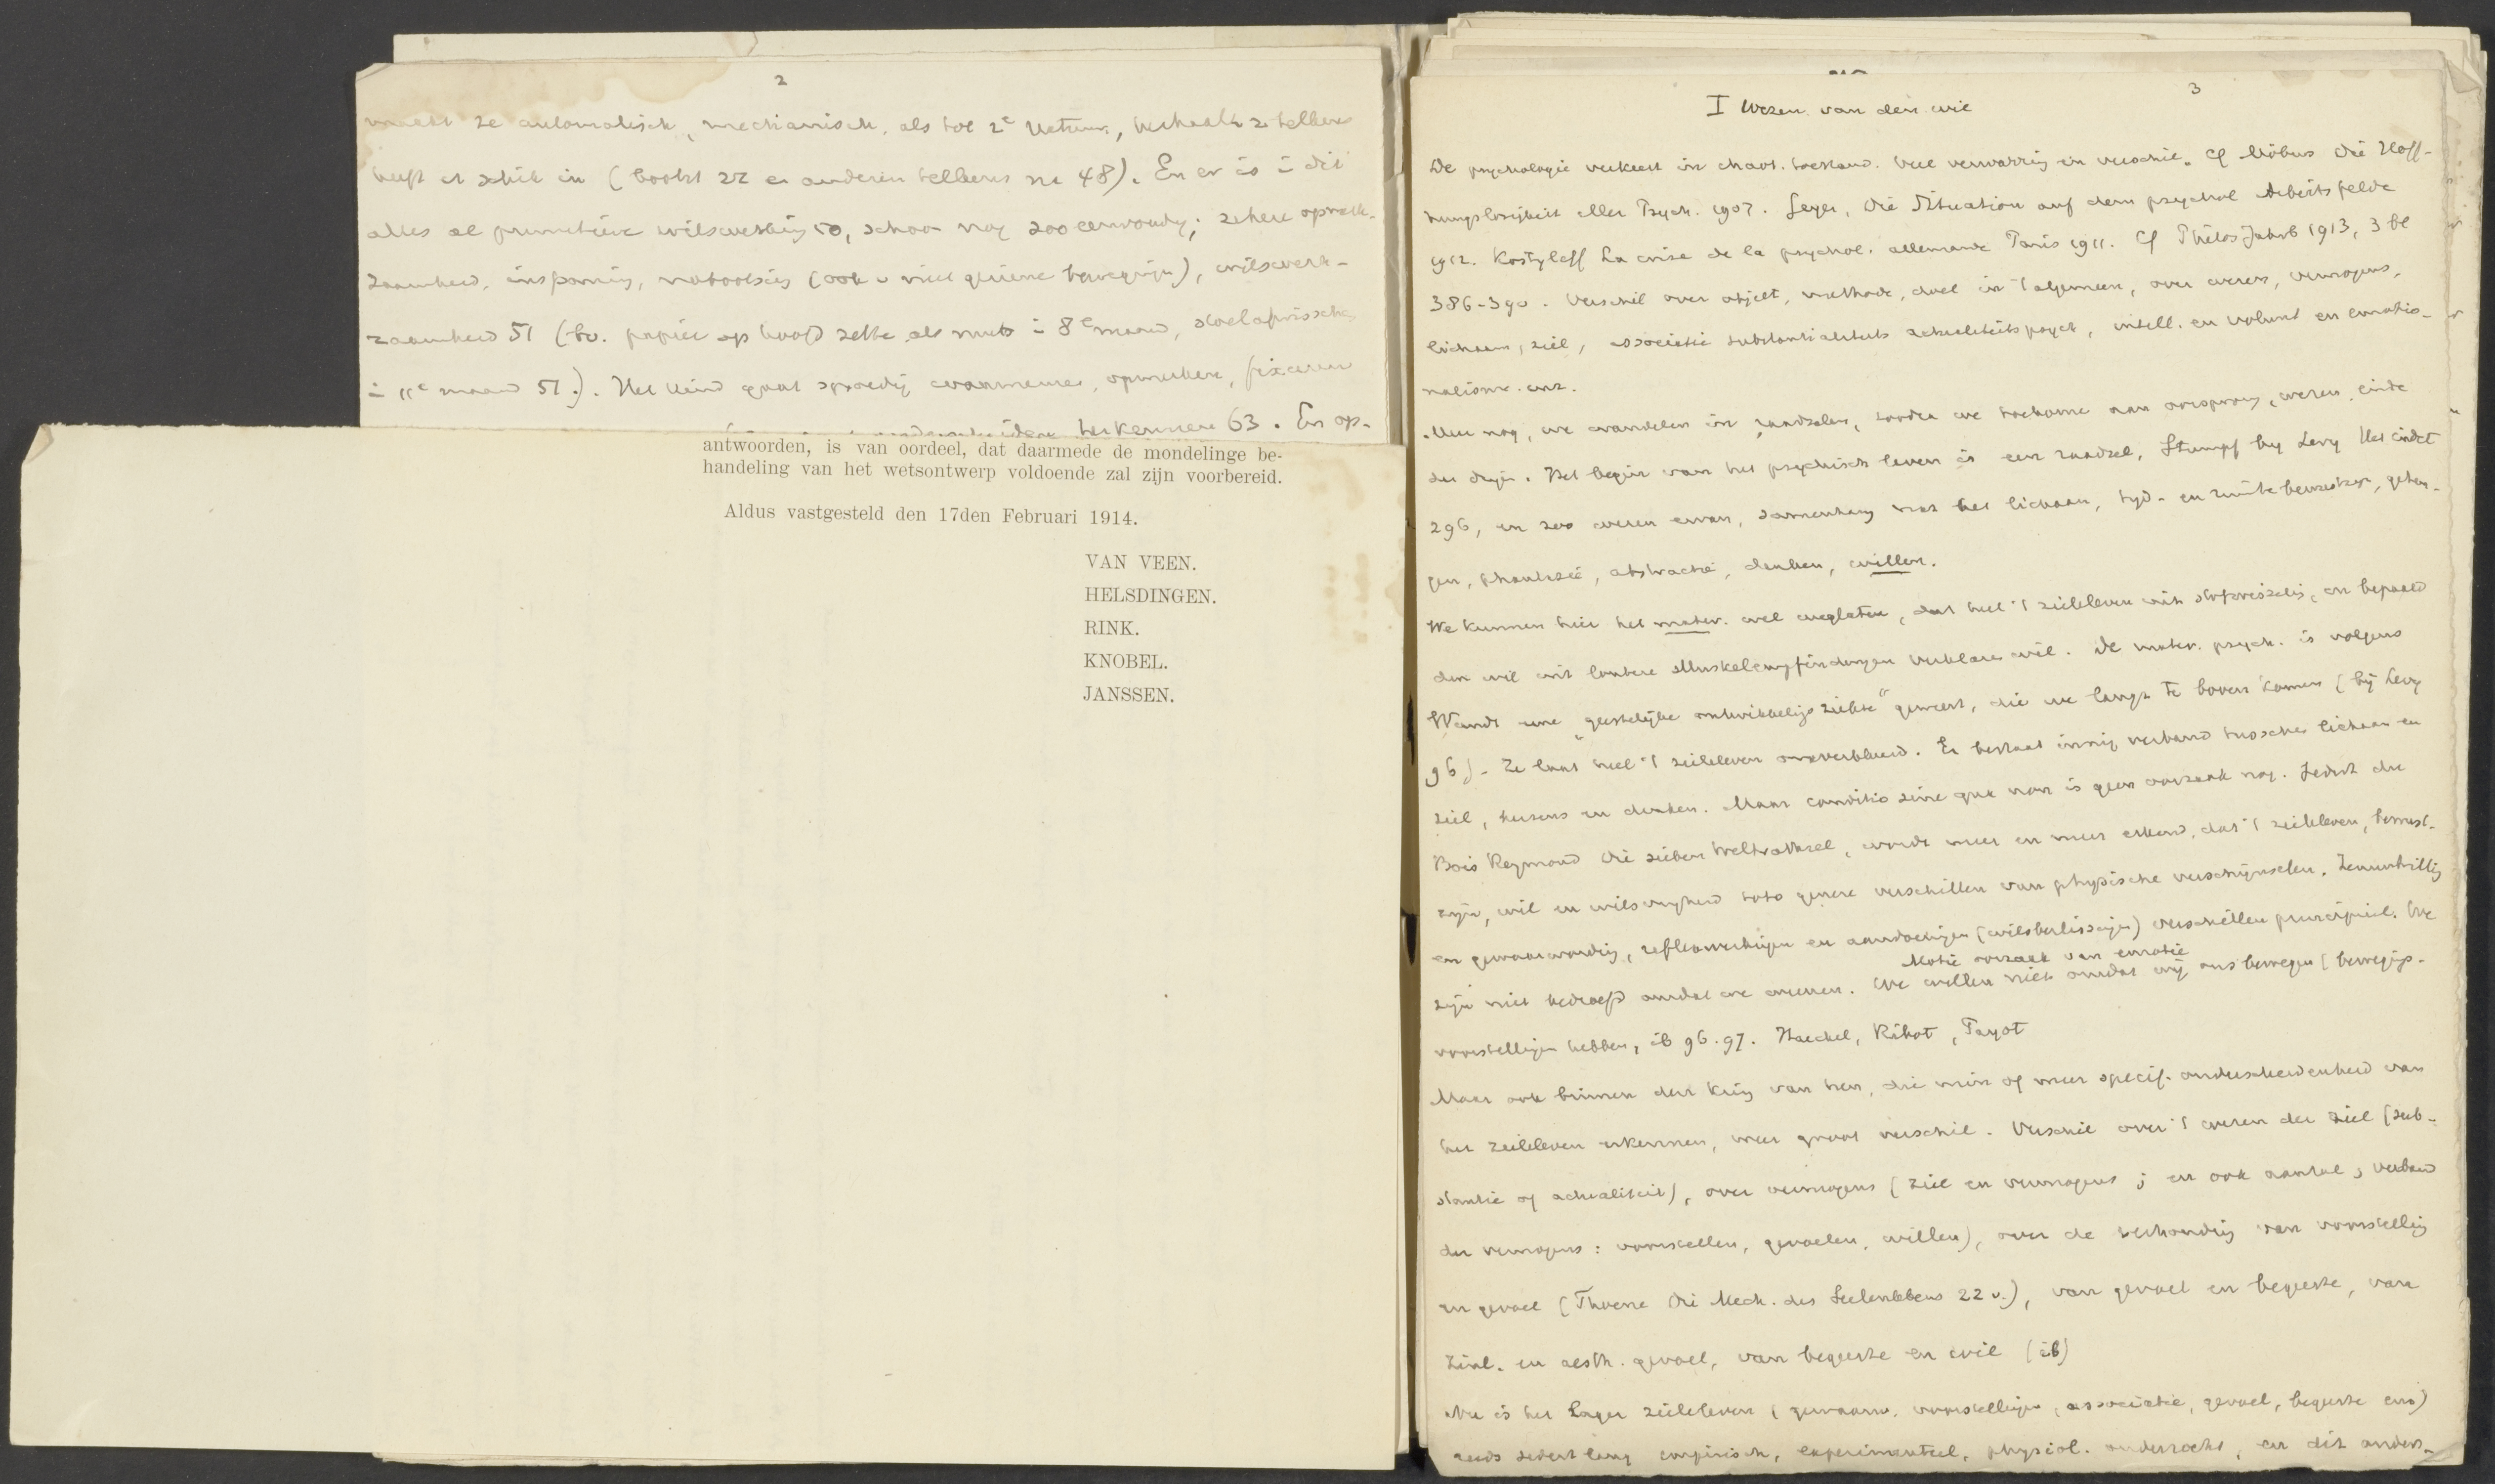 2
maakt ze automatisch, mechanisch, als tot 2e natuur, herhaalt ze telkens
heeft er schik in (bootst zich en anderen telkens na 48). En er is in dit
alles al primitieve wilswerking 50, schoon nog zoo eenvoudig; zekere opmerk-
zaamheid, inspanning, nabootsing (ook v niet geziene bewegingen), wilswerk-
zaamheid 51 (bv. papier op hoofd zette als muts in 8e maand,
in 11e maand 51). Het kind gaat spoedig waarnemen, opmerken, fixeeren
herkennen 63. En op-
antwoorden, is van oordeel, dat daarmede de mondelinge be-
handeling van het wetsontwerp voldoende zal zijn voorbereid.
Aldus vastgesteld den 17den Februari 1914.
VAN VEEN.
HELSDINGEN.
RINK.
KNOBEL.
JANSSEN.
3
I Wezen van den wil
De psychologie verkeert in chaot. toestand. Veel verwarring en verschil. Cf Möbius Die Hoff-
nungslosigkeit aller Psych. 1907. Geyser, Die Situation auf dem psychol Arbeitsfelde
1912. Kostyleff La crise de la psychol. allemande Paris 1911. Cf Philos Jahrb 1913, 3 bl
386-390. Verschil over objekt, methode, doel in 't algemeen, over wezen, vermogens,
lichaam, ziel, associatie substantialiteits actualiteitspsych, intell. en volunt en emotio-
nalisme. enz.
Nu nog, we wandelen in raadselen, zoodra we toekomen aan oorsprong, wezen, einde
der dingen. Het begin van het psychisch leven is een raadsel, Stumpf by Levy Het eindet
296, en zoo wezen ervan, samenhang met het lichaam, tyd- en ruimtebewustzyn, geheu-
gen, phantasie, abstractie, denken, willen.
We kunnen hier het mater. wel weglaten, dat heel 't zieleleven uit stofwisseling, en bepaald
den wil uit loutere Muskelempfindungen verklaren wil. De mater. psych. is volgens
Wundt eene „geestelijke ontwikkelings ziekte" geweest, die we langs te boven komen (bij Levy
96). Ze laat heel 't zieleleven onverklaard. Er bestaat innig verband tusschen lichaam en
ziel, hersens en denken. Maar conditio sine qua non is geen oorzaak nog. Sedert du
Bois Reymond Die sieben Welträthsel, wordt meer en meer erkend, dat 't zieleleven, bewust-
zijn, wil en wilsvryheid toto genere verschillen van physische verschijnselen. Zenuwtrilling
en gewaarwording, reflexwerkingen en aandoeningen (wilsbeslissingen) verschillen principieel. We
Motie oorzaak van emotie
zijn niet bedroefd omdat we weenen. We willen niet omdat wij ons bewegen (bewegings-
voorstellingen hebben, ib 96.97. Haeckel, Ribot, Payot
Maar ook binnen den kring van hen, die min of meer specif. onderscheidenheid van
het zieleleven erkennen, weer groot verschil. Verschil over 't wezen der ziel (sub-
stantie of actualiteit), over vermogens (ziel en vermogens; en ook aantal, verband
der vermogens: voorstellen, gevoelen, willen), over de verhouding van voorstelling
en gevoel (Thoene Die Mech. des Seelenlebens 22 v.), van gevoel en begeerte, van
zinl. en aesth. gevoel, van begeerte en wil (ib)
Nu is het lager zieleleven (gewaarw. voorstellingen, associatie, gevoel, begeerte enz)
reeds sedert lang empirisch, experimenteel, physiol. onderzocht, en dit onder-